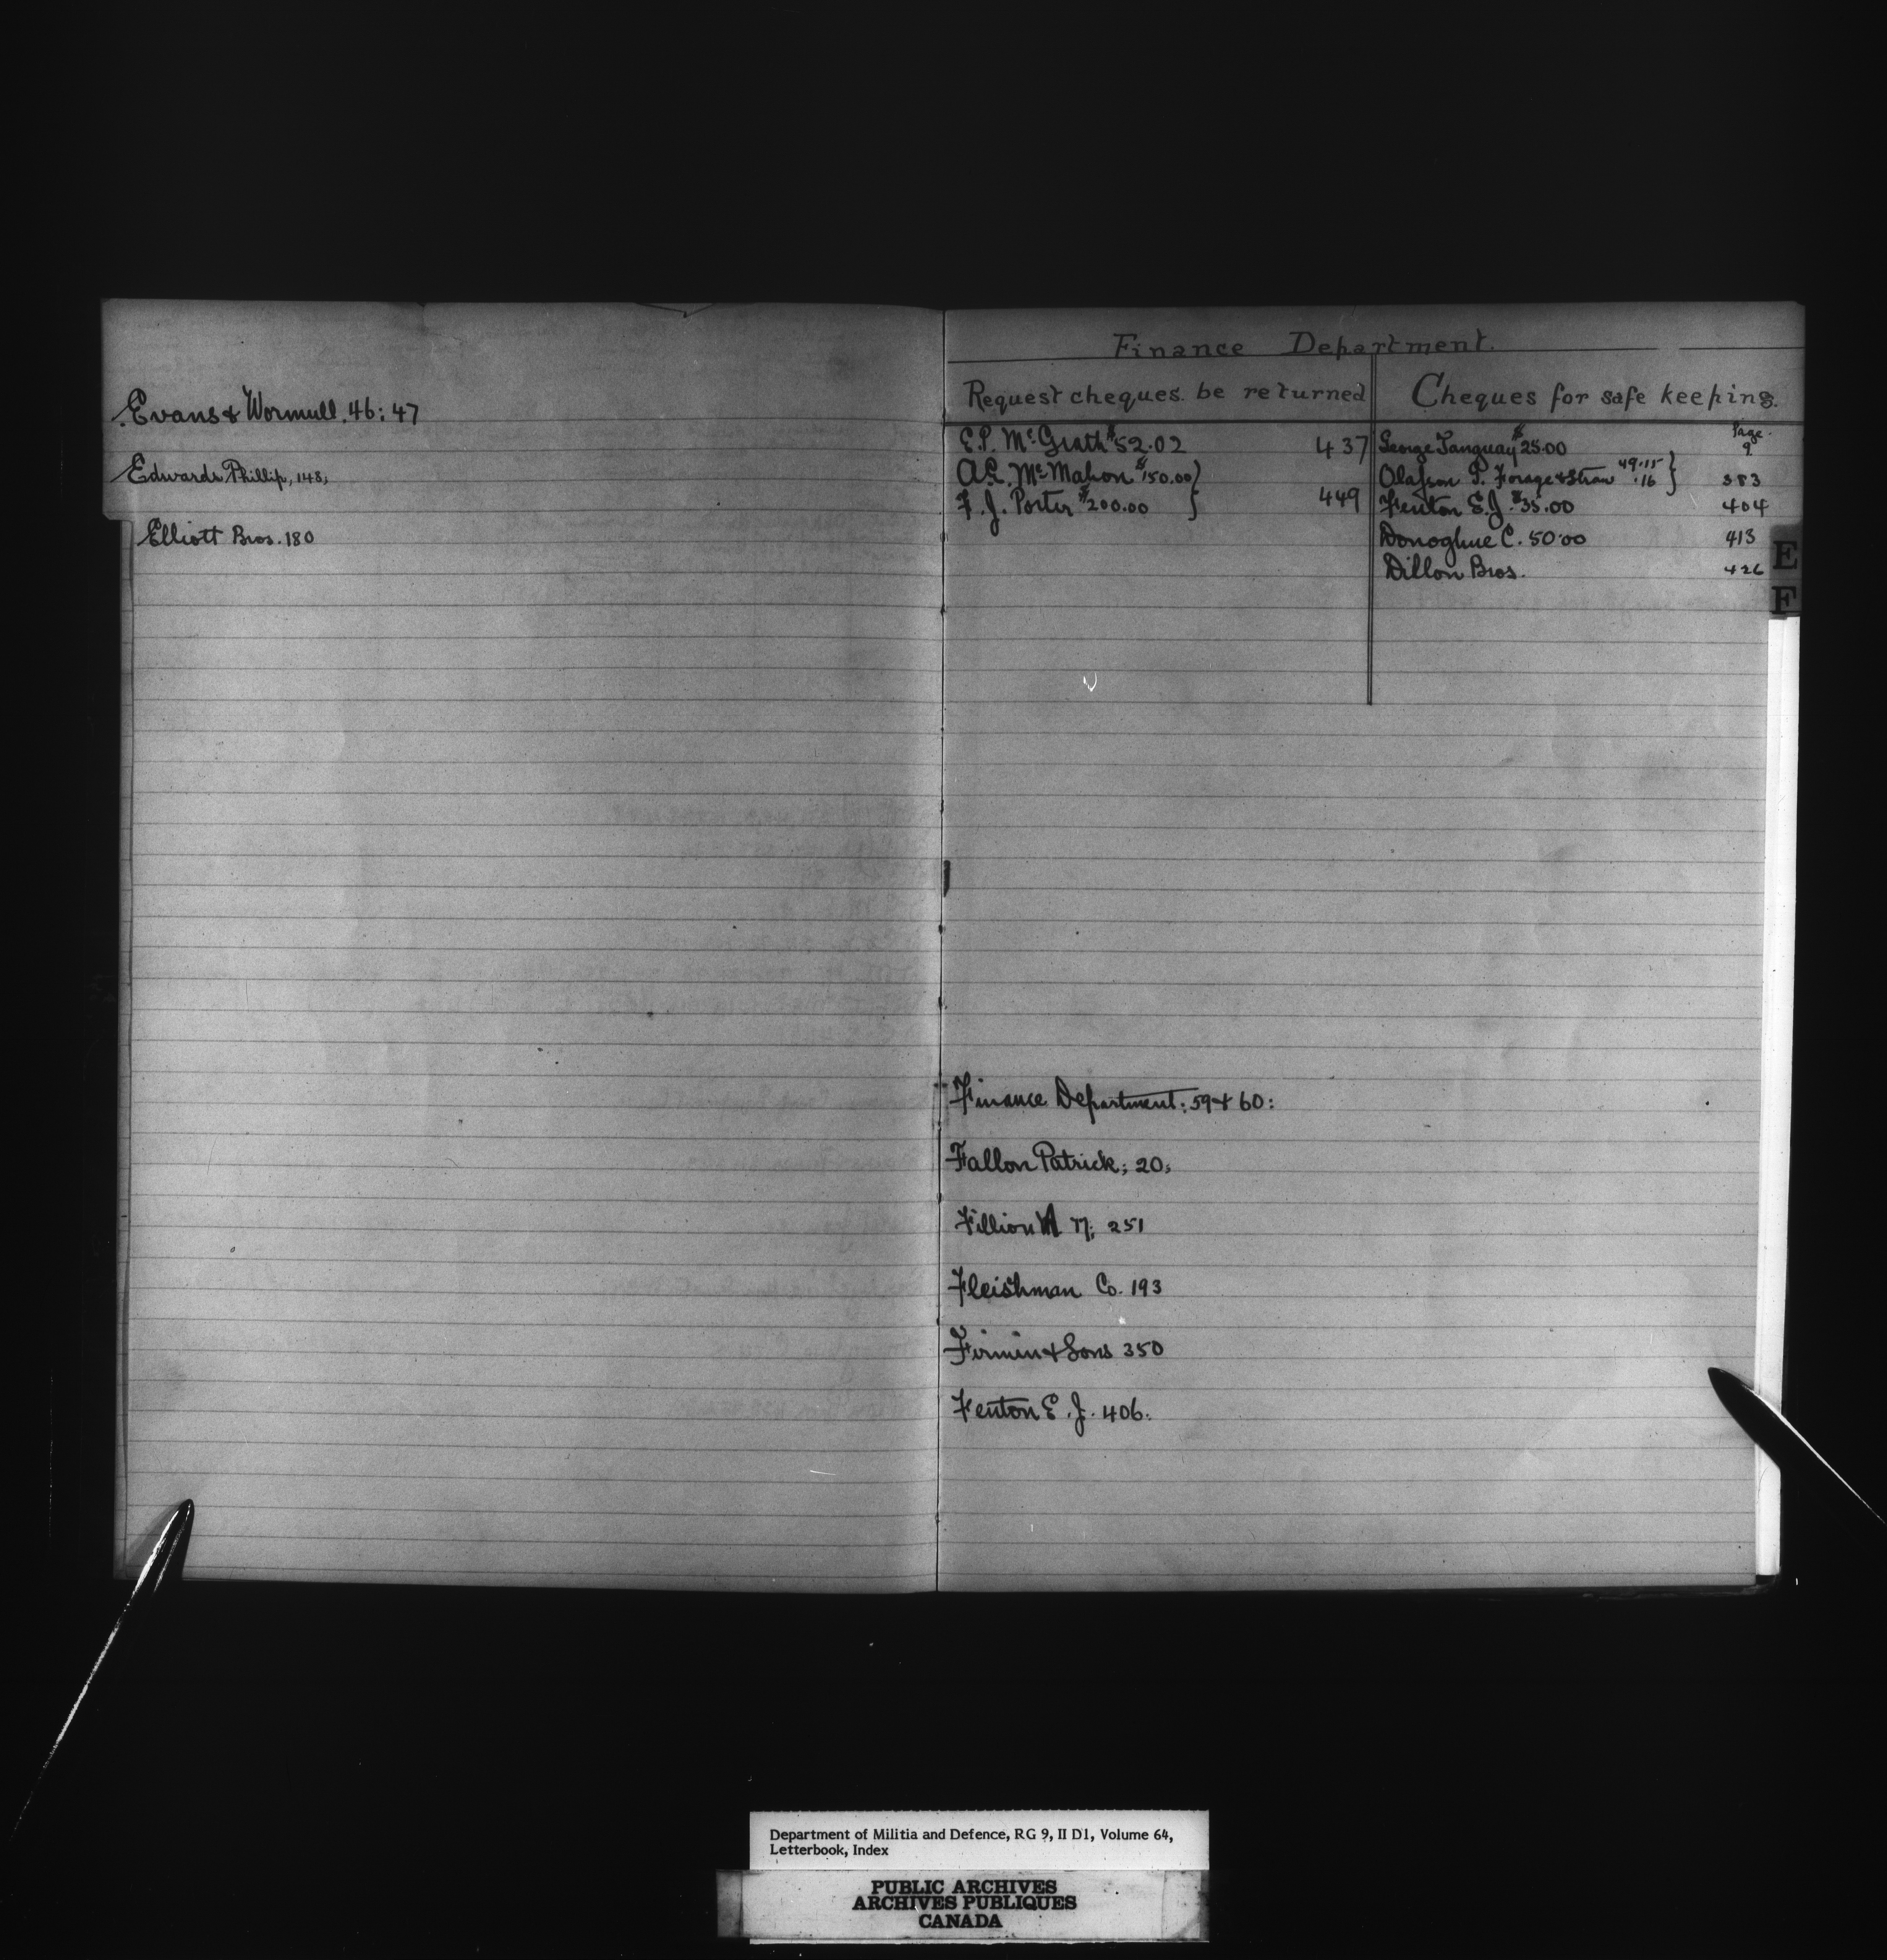 Evans & Wormull. 46: 47
Edwards Phillip, 148;
Elliott Bros. 180
Finance Department.
Request cheques be returned
E.P. McGrath $52.02 437
A.E. McMahon $150.00
F. J. Porter $200.00 449
Cheques for safe keeping.
Page.
George Tanguay $25.00 9
Olafson P. Forage & Straw 49.15 .16 383
Fenton E.J. $35.00 404
Donoghue C. 50.00 413
Dillon Bros. 426
E
F
Finance Department: 59 & 60:
Fallon Patrick; 20;
Fillion 251
Fleishman Co. 193
Firmin & Sons 350
Fenton E. J. 406.
Department of Militia and Defence, RG 9, II D1, Volume 64,
Letterbook, Index
PUBLIC ARCHIVES
ARCHIVES PUBLIQUES
CANADA